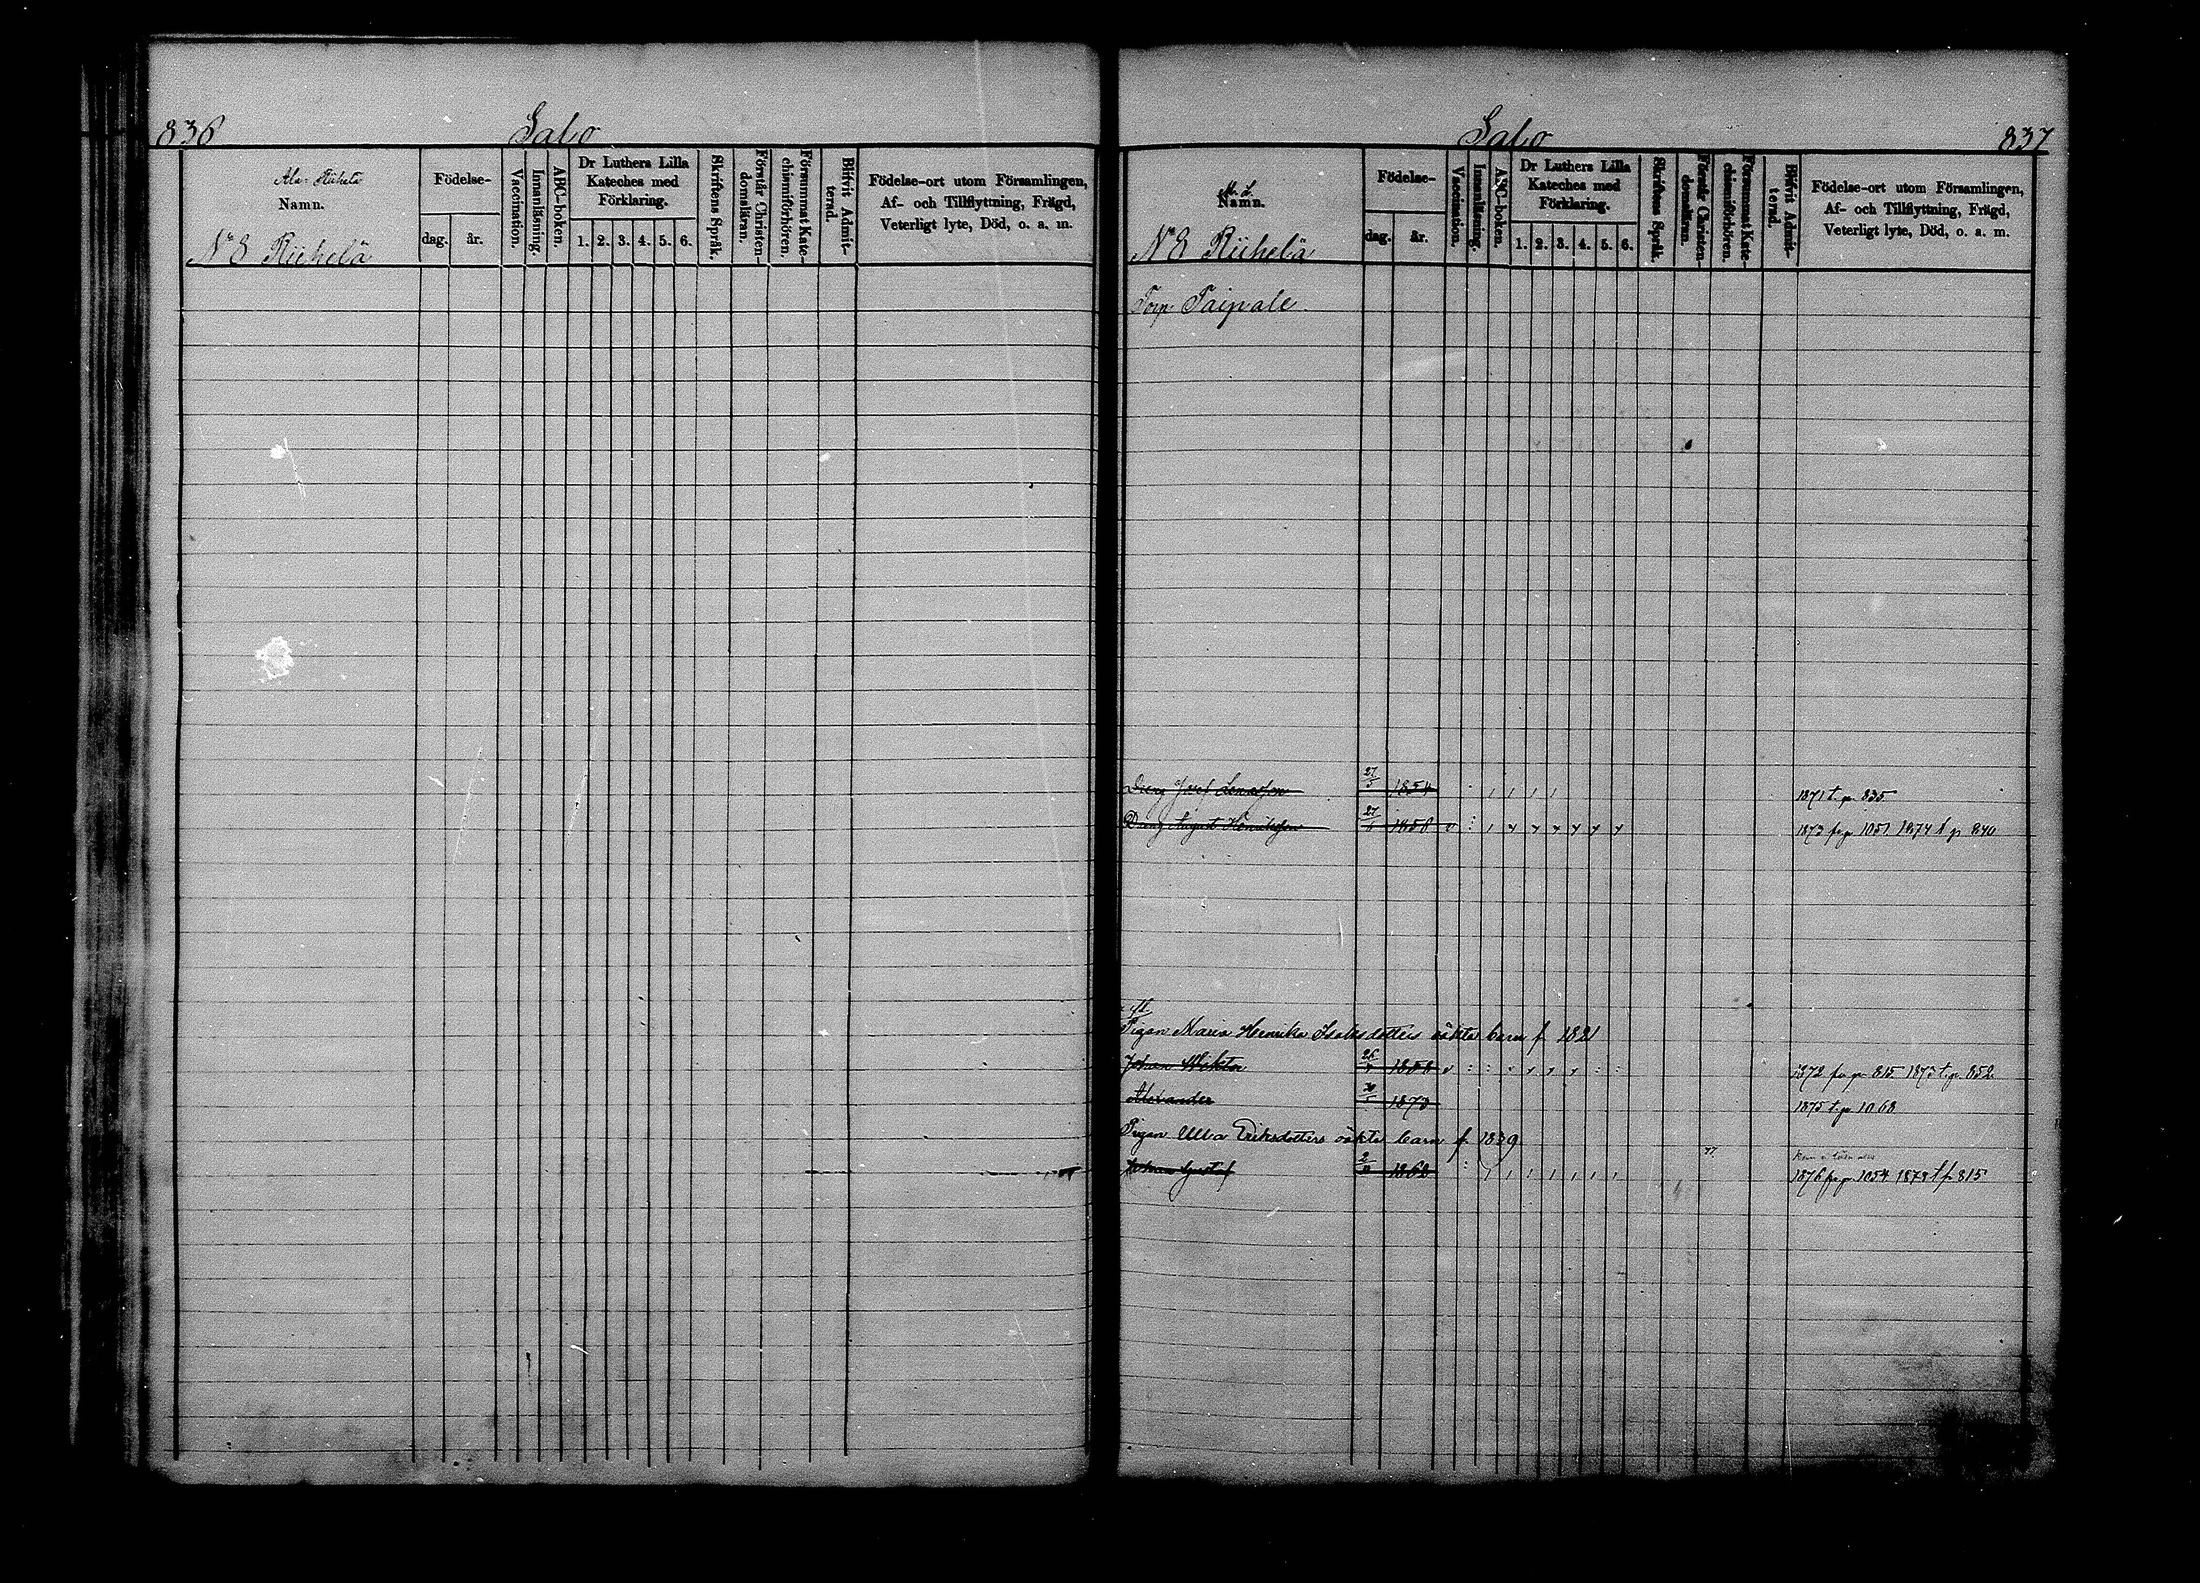 836
Salo
Ala-Riihelä
Namn.
Födelse-
dag. år.
Vaccination.
Innanläsning.
ABC-boken.
Dr Luthers Lilla
Kateches med
Förklaring.
1. 2. 3. 4. 5. 6.
Skriftens Språk.
Förstår Christen-
domsläran.
Försummat Kate-
chismiförhören.
Blifvit Admit-
terad.
Födelse-ort utom Församlingen,
Af- och Tillflyttning, Frägd,
Veterligt lyte, Död, o. a. m.
No 8 Riihelä
Salo
837
Namn.
Födelse-
dag. år.
Vaccination.
Innanläsning.
ABC-boken.
Dr Luthers Lilla
Kateches med
Förklaring.
1. 2. 3. 4. 5. 6.
Skriftens Språk.
Förstår Christen-
domsläran.
Försummat Kate-
chismiförhören.
Blifvit Admit-
terad.
Födelse-ort utom Församlingen,
Af- och Tillflyttning, Frägd,
Veterligt lyte, Död, o. a. m.
No 8 Riihelä
Torp. Taipale
Dreng Josef 27 1854 1871 t. p. 835
Dreng August Henriksson 27 1858 1873 fr. p. 1051 1874 t. p. 840
Pigan Maria Henrika Isaksdotters oäkta barn f. 1821
Johan Wiktor 26 1858 1872 fr. p. 815 1873 t. p. 852
Alexander 1873 1875 t. p. 1068
Pigan Ulla Eriksdotters oäkta barn f. 1839
Johan Gustaf 2 1862 1876 fr. p. 1054 1878 t. p. 815